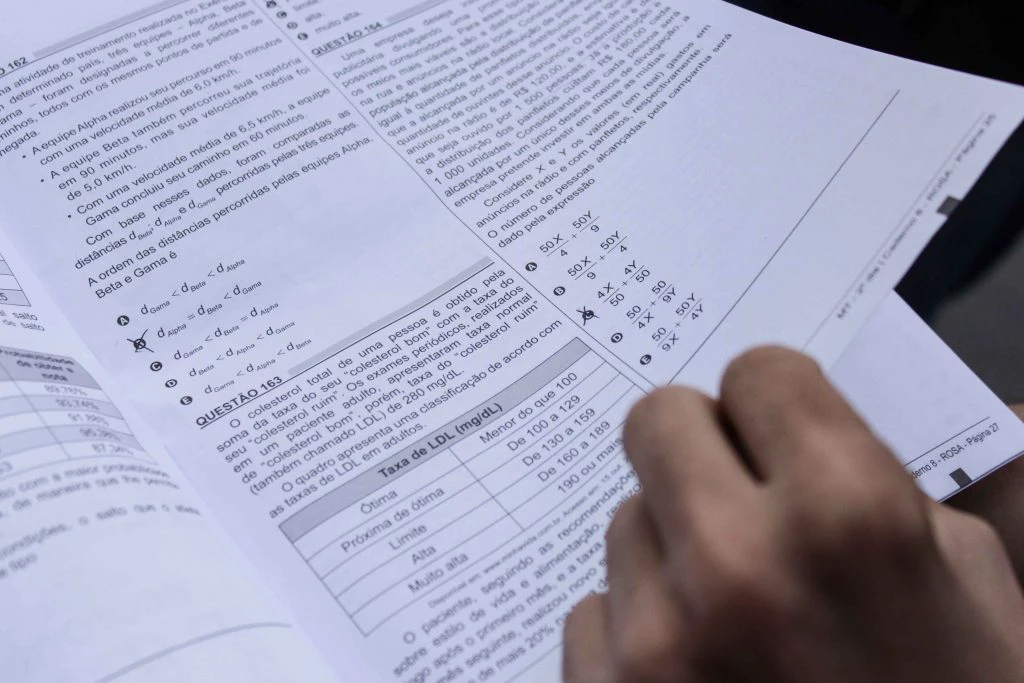 O 162
ma atividade de treinamento realizada no Exér
determinado país, três equipes – Alpha, Beta
ama – foram designadas a percorrer diferentes
minhos, todos com os mesmos pontos de partida e de
negada.
• A equipe Alpha realizou seu percurso em 90 minutos
com uma velocidade média de 6,0 km/h.
• A equipe Beta também percorreu sua trajetória
em 90 minutos, mas sua velocidade média foi
de 5,0 km/h.
• Com uma velocidade média de 6,5 km/h, a equipe
Gama concluiu seu caminho em 60 minutos.
Com base nesses dados, foram comparadas as
distâncias dBeta; dAlpha e dGama percorridas pelas três equipes.
A ordem das distâncias percorridas pelas equipes Alpha,
Beta e Gama é
A dGama < dBeta < dAlpha
dAlpha = dBeta < dGama
C dGama < dBeta = dAlpha
D dBeta < dAlpha < dGama
E dGama < dAlpha < dBeta
QUESTÃO 163
O colesterol total de uma pessoa é obtido pela
soma da taxa do seu “colesterol bom” com a taxa do
seu “colesterol ruim”. Os exames periódicos, realizados
em um paciente adulto, apresentaram taxa normal
de “colesterol bom”, porém, taxa do “colesterol ruim”
(também chamado LDL) de 280 mg/dL.
O quadro apresenta uma classificação de acordo com
as taxas de LDL em adultos.
Taxa de LDL (mg/dL)
Ótima Menor do que 100
Próxima de ótima De 100 a 129
Limite De 130 a 159
Alta De 160 a 189
Muito alta 190 ou mais
Disponível em: www.minhavida.com.br. Acesso em: 15
O paciente, seguindo as recomendações
sobre estilo de vida e alimentação,
ogo após o primeiro mês, e a taxa
mês seguinte, realizou novo
de mais 20%
limite
D alta.
E muito alta.
QUESTÃO 164
Uma empresa deseja
publicitária divulgando uma
possíveis consumidores. Para esse
os meios mais viáveis são a distribuição
na rua e anúncios na rádio local. Considera-se
população alcançada pela distribuição
igual à quantidade de panfletos distribuídos,
que a alcançada por um anúncio na rádio seja igual
quantidade de ouvintes desse anúncio. O custo de
anúncio na rádio é de R$ 120,00, e a estimativa é de
que seja ouvido por 1 500 pessoas. Já a produção e
a distribuição dos panfletos custam R$ 180,00 cada
1 000 unidades. Considerando que cada pessoa será
alcançada por um único desses meios de divulgação, a
empresa pretende investir em ambas as mídias.
Considere X e Y os valores (em real) gastos em
anúncios na rádio e com panfletos, respectivamente.
O número de pessoas alcançadas pela campanha será
dado pela expressão
A 50X/4 + 50Y/9
B 50X/9 + 50Y/4
4X/50 + 4Y/50
D 50/4X + 50/9Y
E 50/9X + 50Y/4Y
MT - 2º dia | Caderno 8 - ROSA - Página 25
derno 8 - ROSA - Página 27